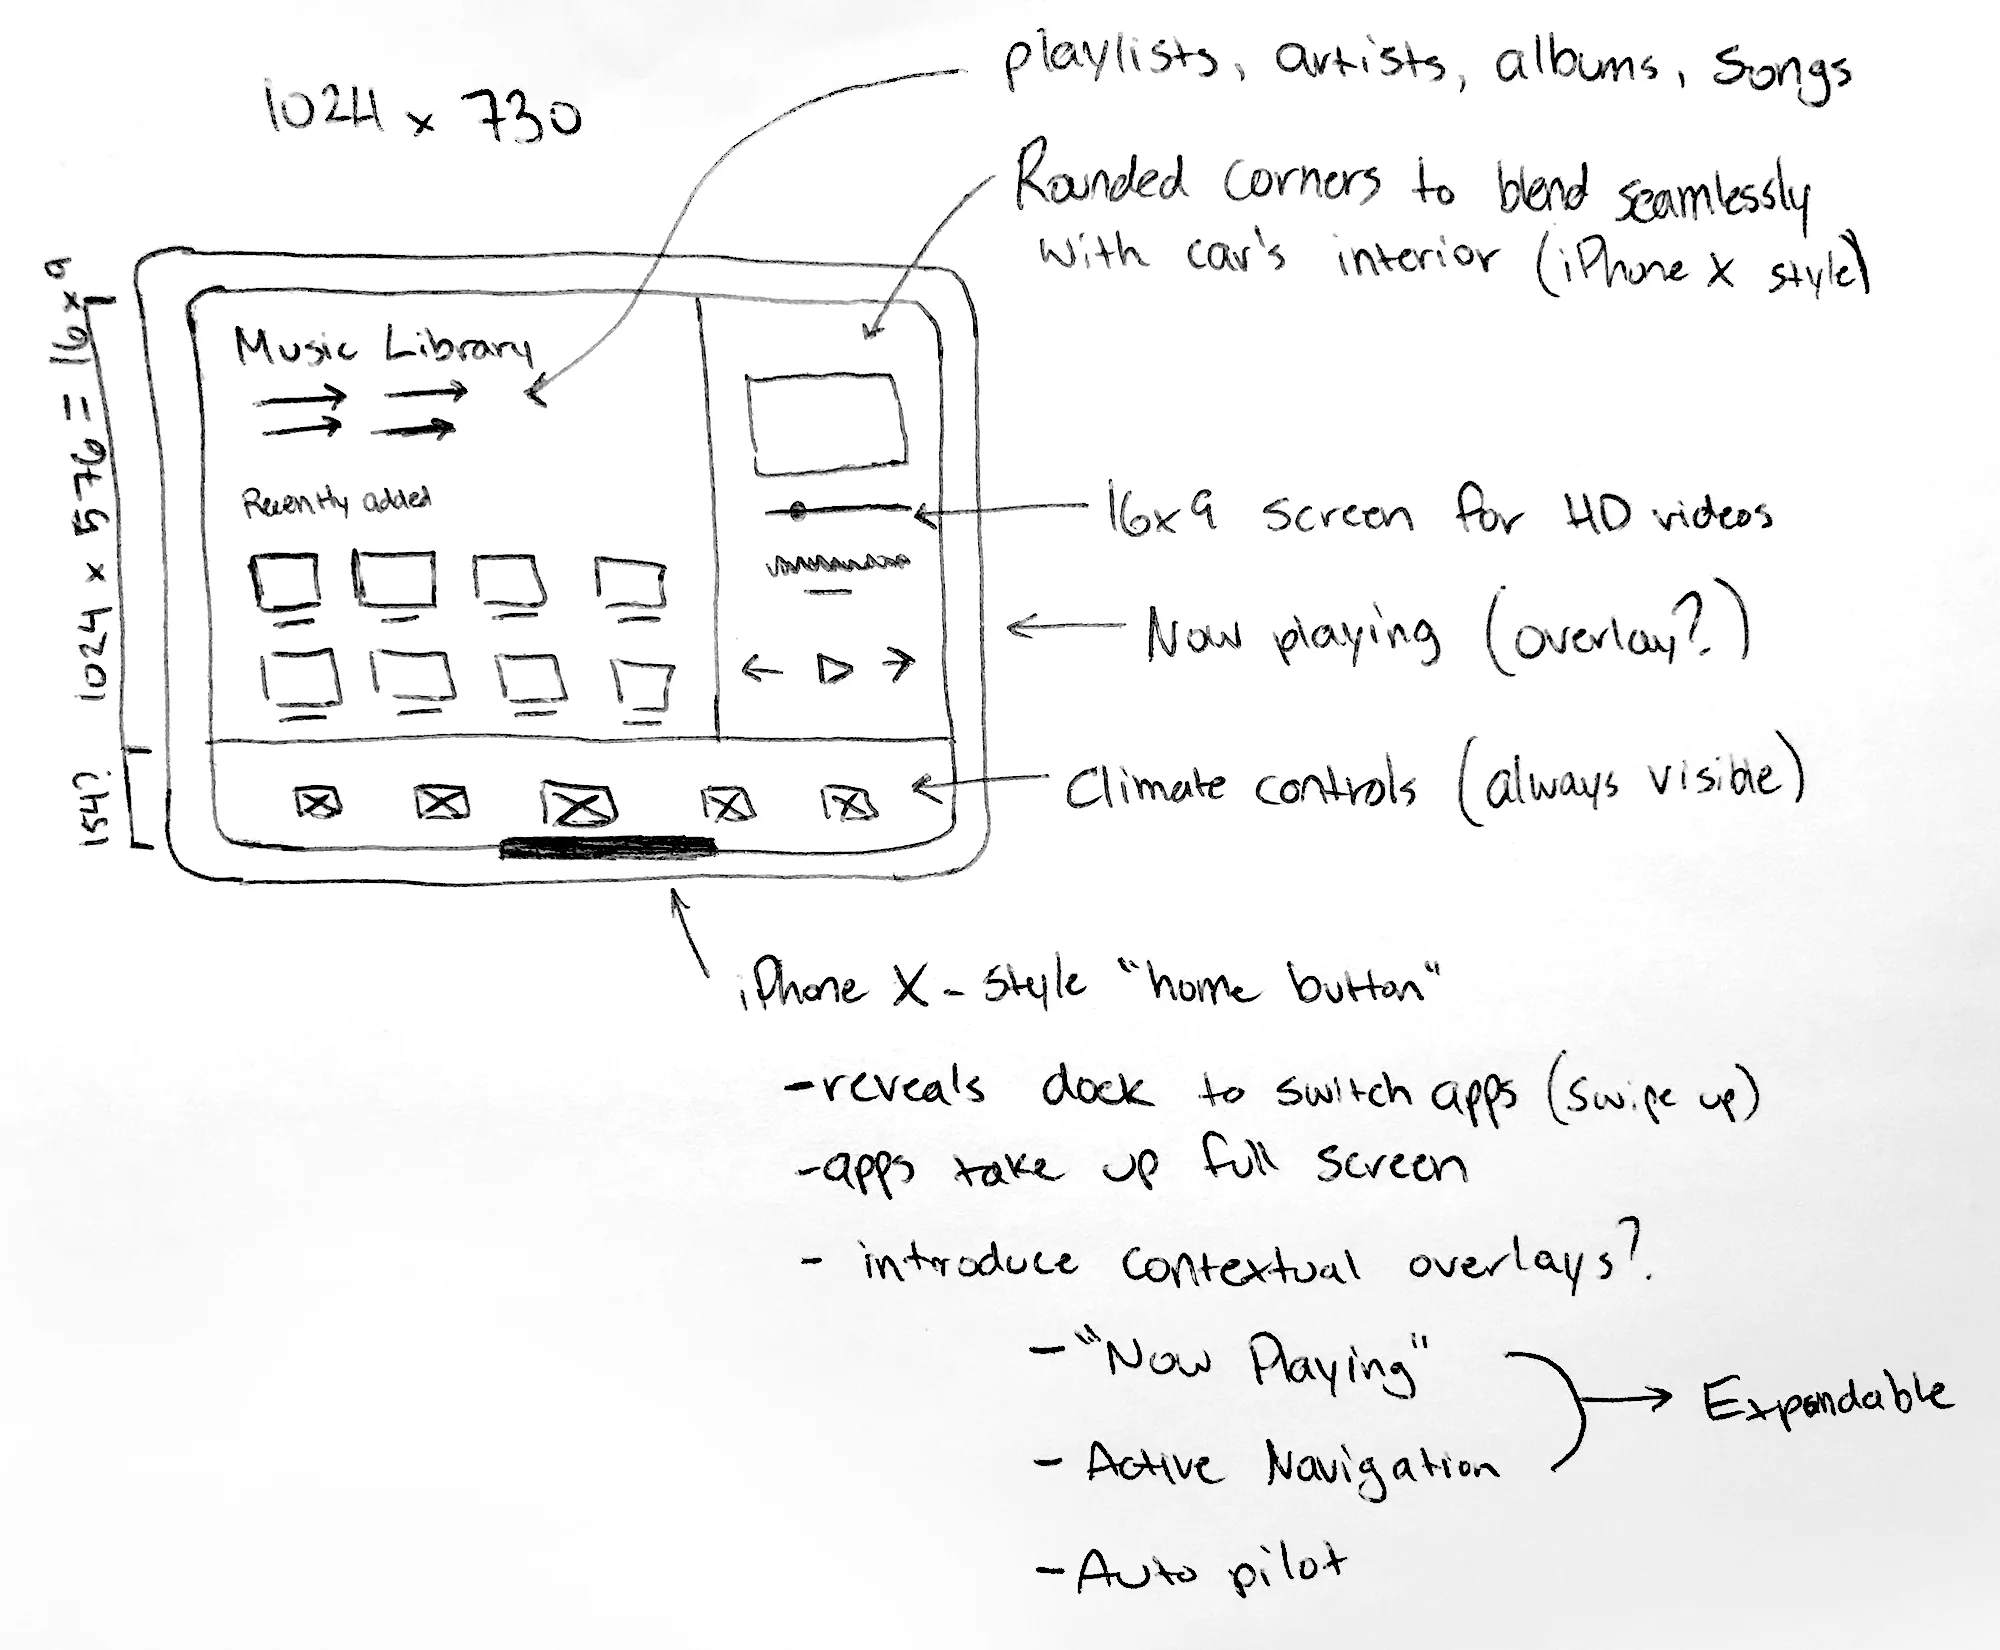 1024 x 730
playlists, artists, albums, songs
Rounded corners to blend seamlessly
with car's interior (iPhone X style)
1024 x 576 = 16x9
154?
Music Library
Recently added
16x9 screen for HD videos
Now playing (overlay?)
Climate controls (always visible)
iPhone X - Style "home button"
- reveals dock to switch apps (swipe up)
- apps take up full screen
- introduce contextual overlays?
- "Now Playing"
- Active Navigation
Expandable
- Auto pilot